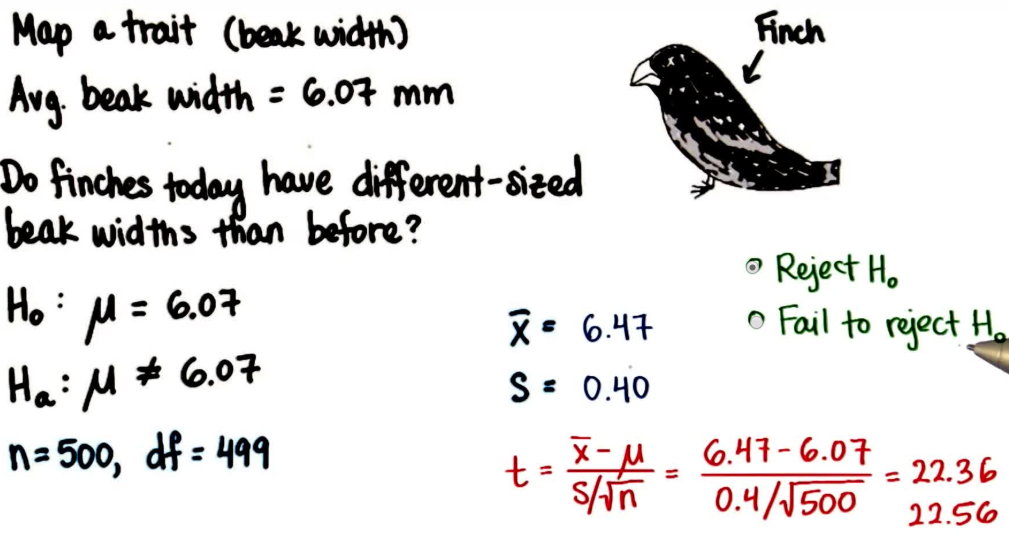 Map a trait (beak width)
Avg. beak width = 6.07 mm
Finch
Do finches today have different-sized
beak widths than before?
H₀ : μ = 6.07
Hₐ : μ ≠ 6.07
n = 500, df = 499
x̄ = 6.47
S = 0.40
Reject H₀
Fail to reject H₀
t = (x̄ - μ)/(S/√n) = (6.47 - 6.07)/(0.4/√500) = 22.36
22.56